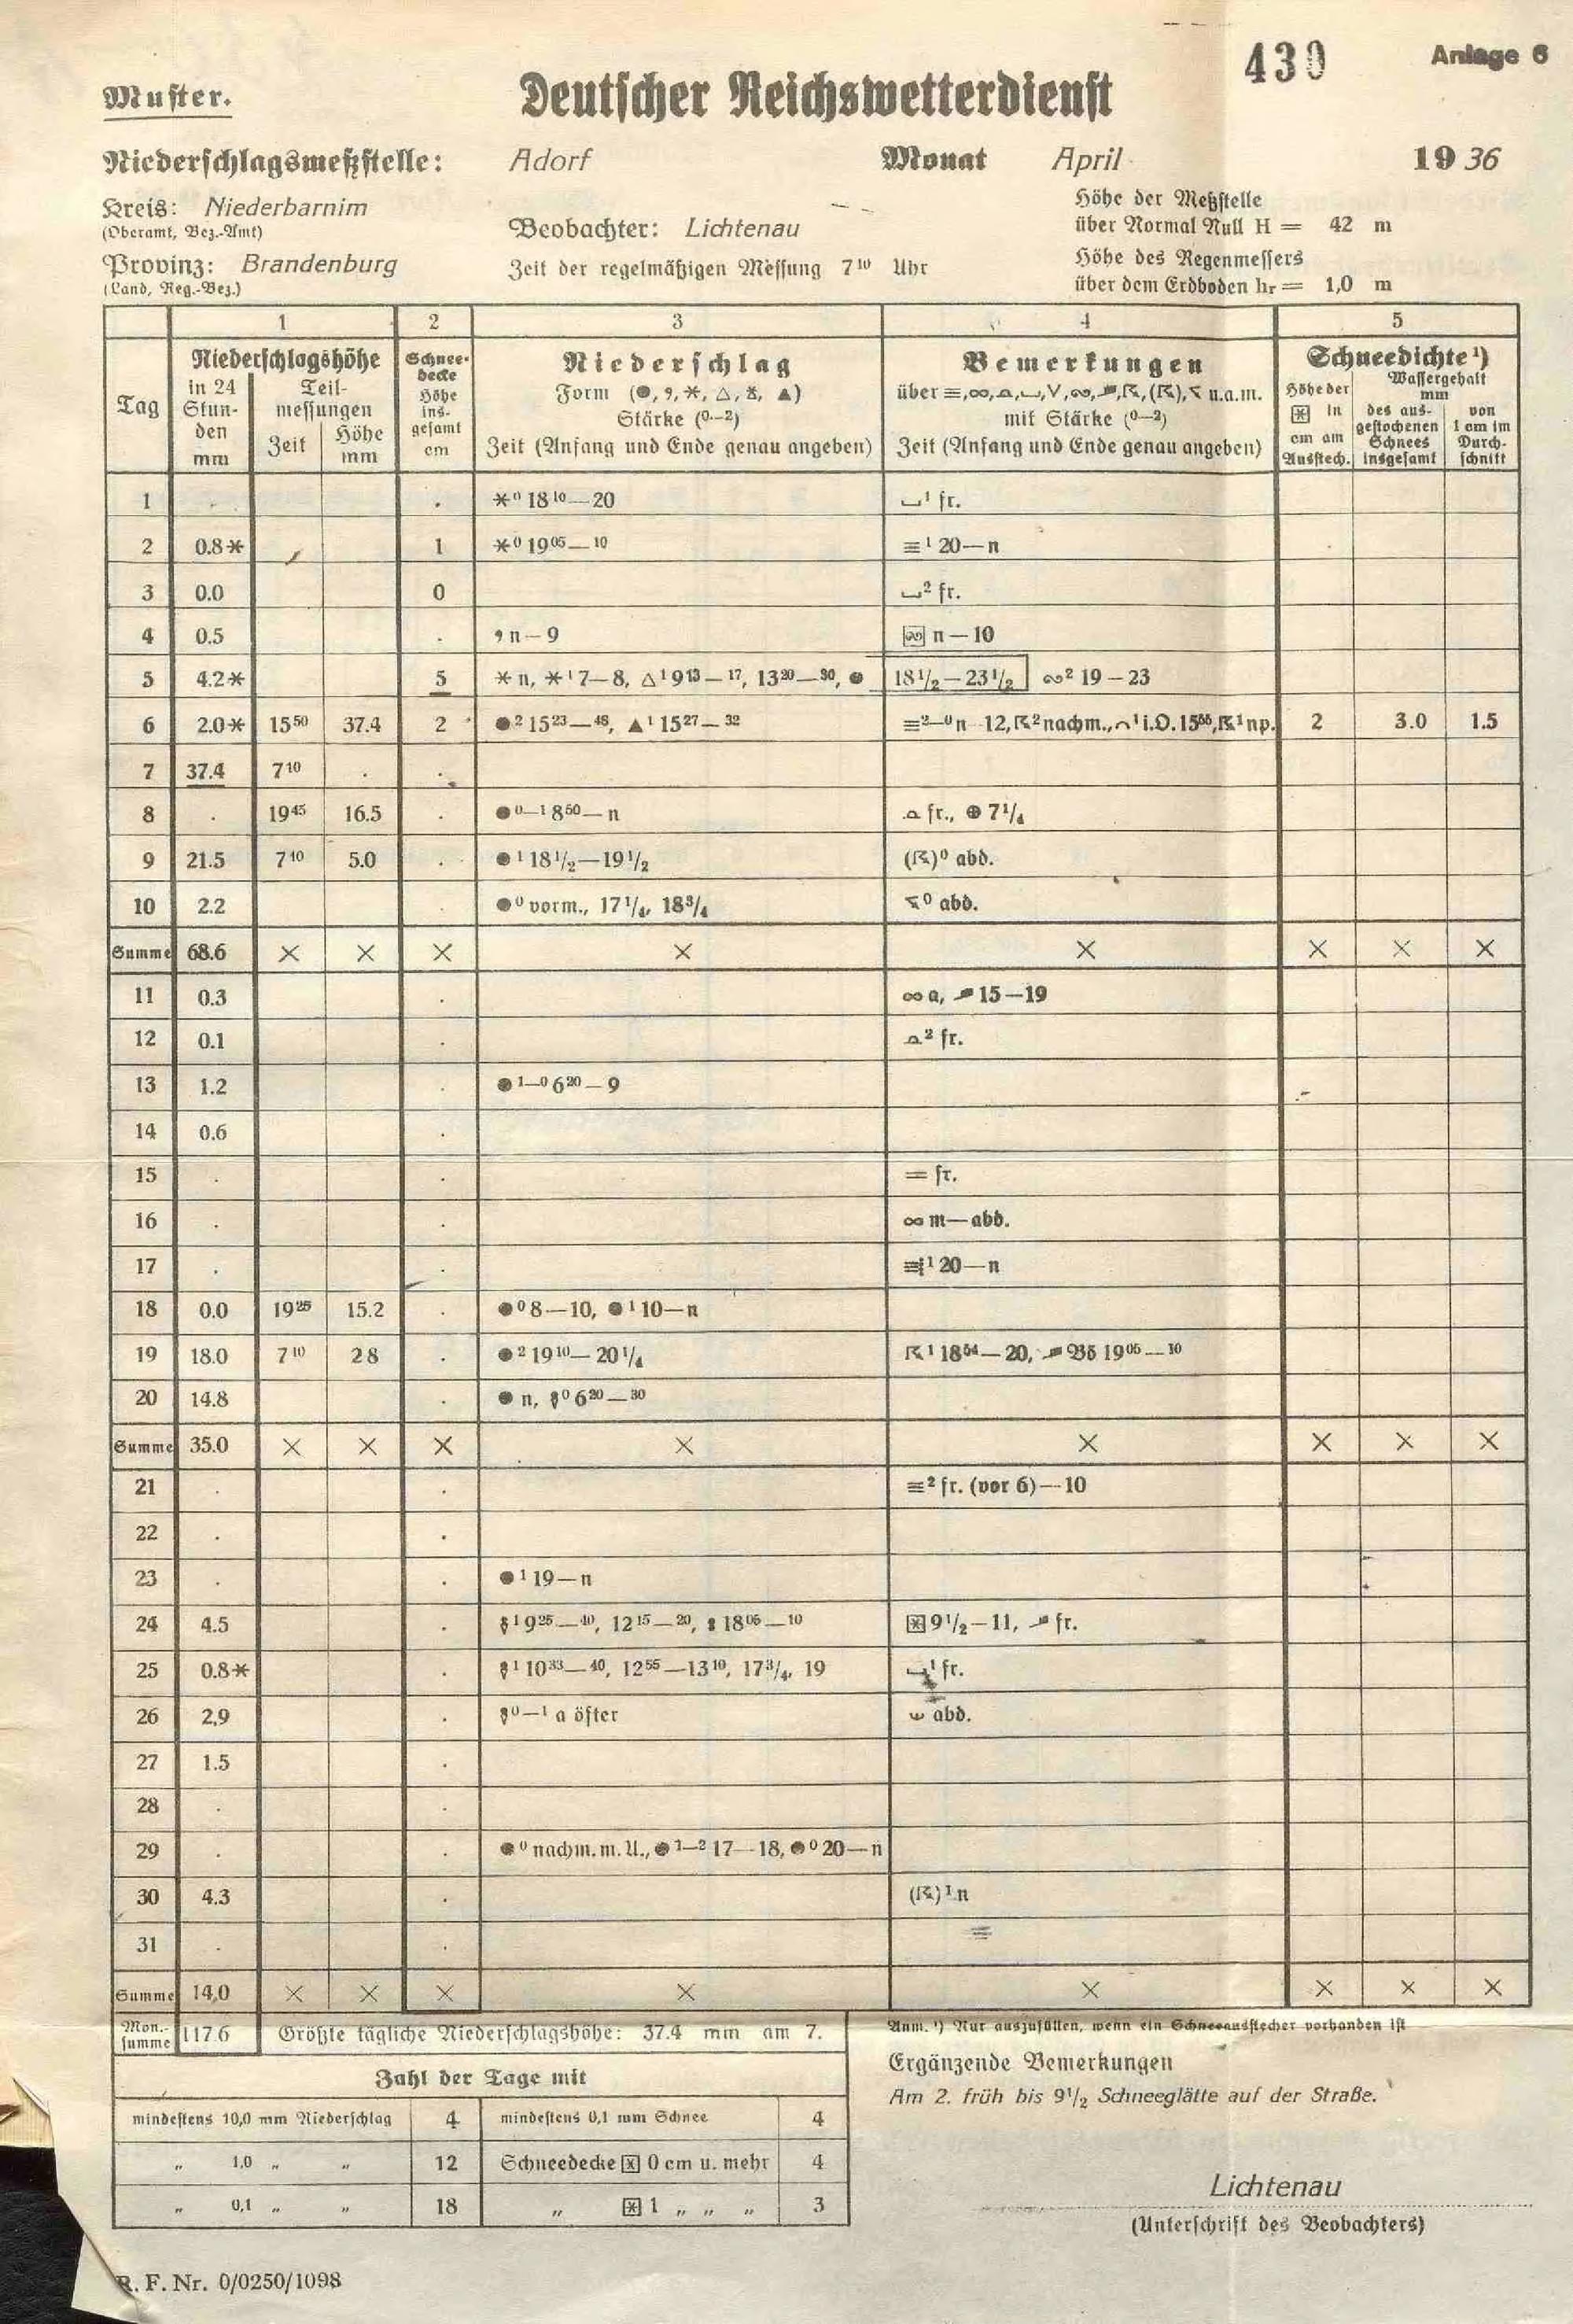 430 Anlage 6
Muster. Deutscher Reichswetterdienst
Niederschlagsmeßstelle: Adorf Monat April 19 36
Kreis: Niederbarnim
(Oberamt, Bez.-Amt)
Provinz: Brandenburg
(Land, Reg.-Bez.)
Beobachter: Lichtenau
Zeit der regelmäßigen Messung 7¹⁰ Uhr
Höhe der Meßstelle
über Normal Null H = 42 m
Höhe des Regenmessers
über dem Erdboden hr = 1,0 m
1 2 3 4 5
Tag
Niederschlagshöhe
in 24 Stunden mm
Teilmessungen
Zeit Höhe mm
Schneedecke Höhe insgesamt cm
Niederschlag
Form (●, ❜, ✶, △, ⚹, ▲)
Stärke (⁰–²)
Zeit (Anfang und Ende genau angeben)
Bemerkungen
über ≡, ∞, ⌓, ⌴, V, ∾, ☈, (☈), u.a.m.
mit Stärke (⁰–²)
Zeit (Anfang und Ende genau angeben)
Schneedichte ¹)
Höhe der ⊠ in cm am Ausstech.
Wassergehalt mm
des ausgestochenen Schnees insgesamt
von 1 cm im Durchschnitt
1 . . ✶⁰ 18¹⁰—20 ⌴¹ fr.
2 0.8✶ 1 ✶⁰ 19⁰⁵—¹⁰ ≡¹ 20—n
3 0.0 0 ⌴² fr.
4 0.5 . ❜ n—9 n—10
5 4.2✶ 5 ✶ n, ✶¹ 7—8, △¹ 9¹³—¹⁷, 13²⁰—³⁰, ● 18½—23½ ∾² 19—23
6 2.0✶ 15⁵⁰ 37.4 2 ●² 15²³—⁴⁸, ▲¹ 15²⁷—³² ≡²⁻⁰ n 12, ☈² nachm., ⌒¹ i.O. 15⁵⁵, ☈¹ np. 2 3.0 1.5
7 37.4 7¹⁰ . .
8 . 19⁴⁵ 16.5 . ●⁰⁻¹ 8⁵⁰—n ⌓ fr., ⊕ 7¼
9 21.5 7¹⁰ 5.0 . ●¹ 18½—19½ (☈)⁰ abd.
10 2.2 . ●⁰ vorm., 17¼, 18¾ ⁰ abd.
Summe 68.6 × × × × × × × ×
11 0.3 . ∞ a, 15—19
12 0.1 . ⌓² fr.
13 1.2 . ●¹⁻⁰ 6²⁰—9
14 0.6 .
15 . . = fr.
16 . . ∞ m—abd.
17 . . ≡¹ 20—n
18 0.0 19²⁵ 15.2 . ●⁰ 8—10, ●¹ 10—n
19 18.0 7¹⁰ 28 . ●² 19¹⁰—20¼ ☈¹ 18⁵⁴—20, Bö 19⁰⁵—¹⁰
20 14.8 . ● n, ⁰ 6²⁰—³⁰
Summe 35.0 × × × × × × × ×
21 . . ≡² fr. (vor 6)—10
22 . .
23 . . ●¹ 19—n
24 4.5 . ¹ 9²⁵—⁴⁰, 12¹⁵—²⁰, 18⁰⁵—¹⁰ ⊠ 9½—11, fr.
25 0.8✶ . ¹ 10³³—⁴⁰, 12⁵⁵—13¹⁰, 17¾, 19 ⌴¹ fr.
26 2,9 . ⁰⁻¹ a öfter abd.
27 1.5 .
28 . .
29 . . ●⁰ nachm. m. U., ●¹⁻² 17—18, ●⁰ 20—n
30 4.3 . (☈)¹ n
31 . .
Summe 14,0 × × × × × × × ×
Mon.-summe 117.6 Größte tägliche Niederschlagshöhe: 37.4 mm am 7.
Zahl der Tage mit
mindestens 10,0 mm Niederschlag 4 mindestens 0,1 mm Schnee 4
„ 1,0 „ „ 12 Schneedecke ⊠ 0 cm u. mehr 4
„ 0,1 „ „ 18 „ ⊠ 1 „ „ „ 3
Anm. ¹) Nur auszufüllen, wenn ein Schneeausstecher vorhanden ist
Ergänzende Bemerkungen
Am 2. früh bis 9½ Schneeglätte auf der Straße.
Lichtenau
(Unterschrift des Beobachters)
R. F. Nr. 0/0250/1098